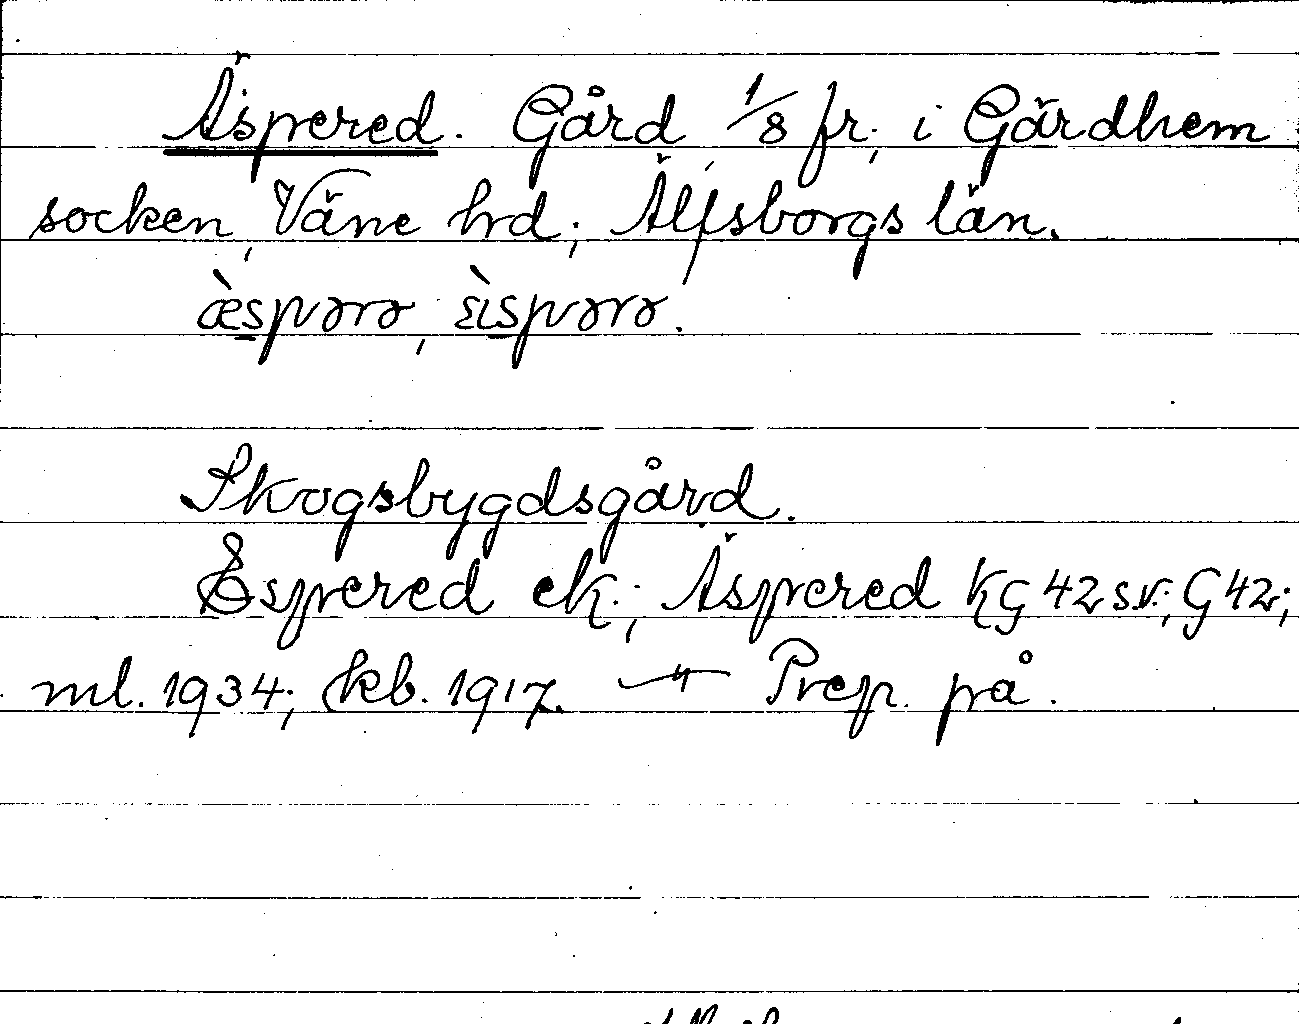 Äspered. Gård, 1/8 fr., i Gärdhem
socken, Väne hrd, Älfsborgs län.
æ̀spərə, ɛ̀ıspərə.
Skogsbygdsgård.
Espered ek.; Äspered KG 42 sv., G 42;
ml. 1934; kb. 1917. — " — Prep. på.